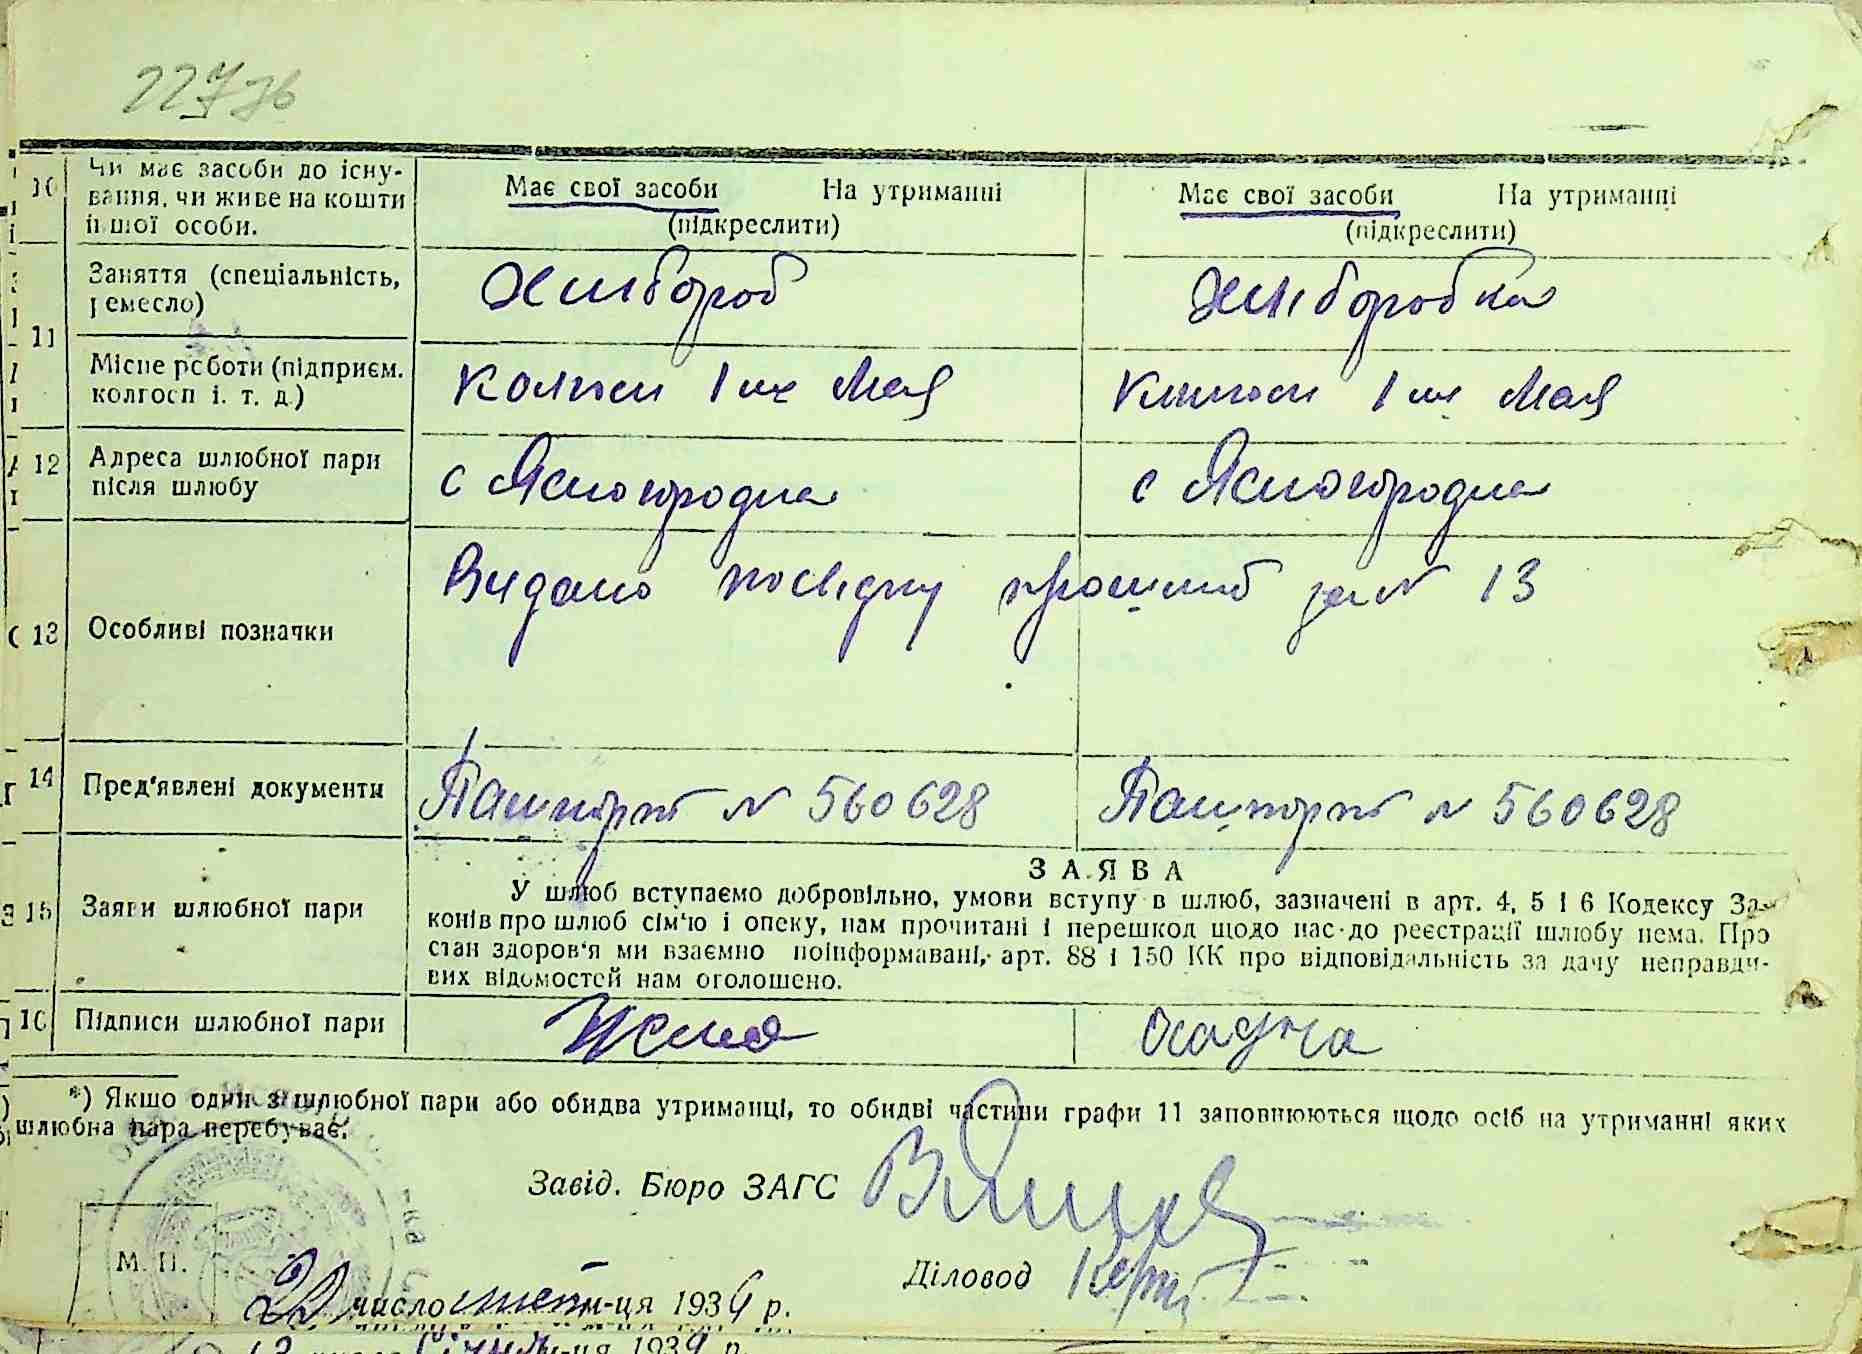 227 зв
10 Чи має засоби до існу-
вання, чи живе на кошти
іншої особи.
Має свої засоби На утриманні
(підкреслити)
Має свої засоби На утриманні
(підкреслити)
11 Заняття (спеціальність,
ремесло)
Хлибороб
Хлиборобка
Місце роботи (підприєм.
колгосп і. т. д.)
Колгосп 1 ше Мая
Колгосп 1 ше Мая
12 Адреса шлюбної пари
після шлюбу
с Ясногородка
с Ясногородка
13 Особливі позначки
Видано посвідку про шлюб за № 13
14 Пред'явлені документи
Пашпорт № 560628
Пашпорт № 560628
15 Заяви шлюбної пари
ЗАЯВА
У шлюб вступаємо добровільно, умови вступу в шлюб, зазначені в арт. 4, 5 і 6 Кодексу За-
конів про шлюб сім'ю і опеку, нам прочитані і перешкод щодо нас до реєстрації шлюбу нема. Про
стан здоров'я ми взаємно поінформавані, арт. 88 і 150 КК про відповідальність за дачу неправди-
вих відомостей нам оголошено.
16 Підписи шлюбної пари
*) Якщо один з шлюбної пари або обидва утриманці, то обидві частини графи 11 заповнюються щодо осіб на утриманні яких
шлюбна пара перебуває.
Завід. Бюро ЗАГС
Діловод
М. П.
число м-ця 1939 р.
13 січня м-ця 1939 р.